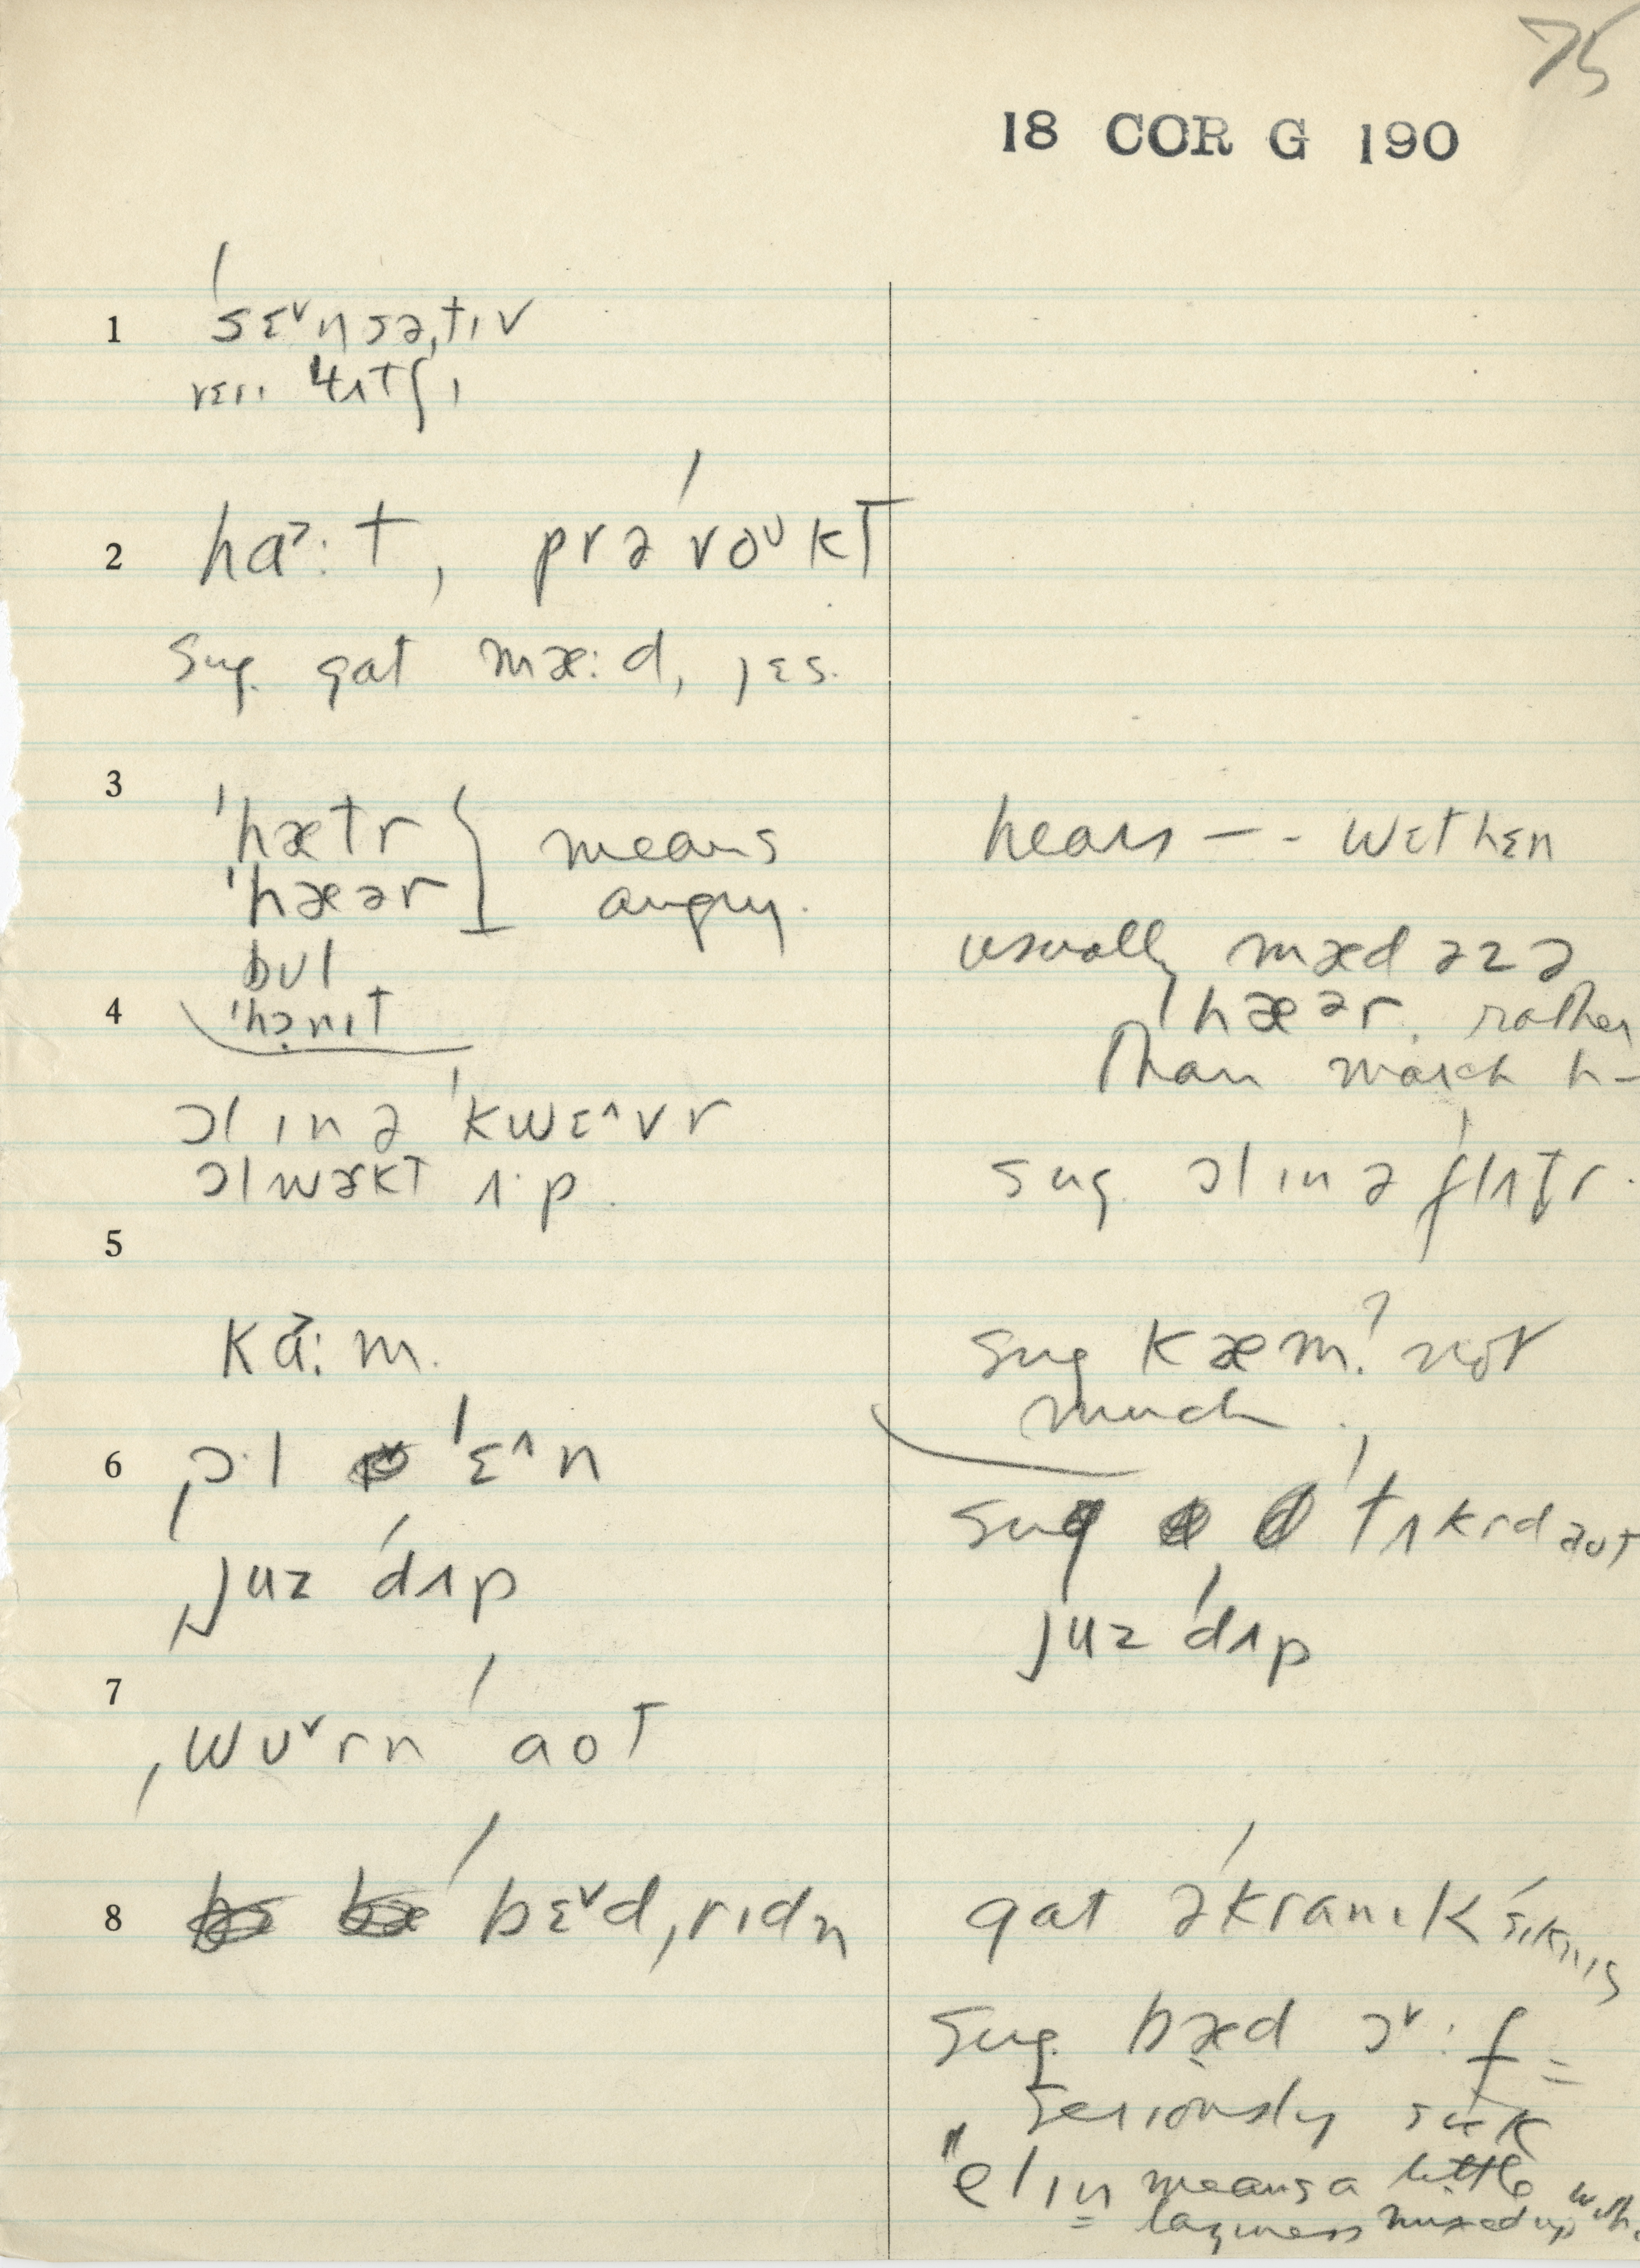 75
18 COR G 190
1 ˈsɛ˅nsəˌtɪv
2 hɑ˃:t, prəˈvoᴜkt
Sug. gat mæ:d, jɛs.
3
ˈhætr } means
ˈhæər angry.
bʊl
4 ˈhɔnɪt
ɔl ɪn ə ˈkwɛ^vr
ɔl wɜkt ʌ·p.
5
kɑ˃:m.
6 ˌɔ·l ˈɛ^n
ˌjuz ˈdʌp
7
ˌwʊ˅rn ˈaot
8 bɛ˅dˌrɪdn
hears -- wɛt hɛn
usually mæd əz ə
hæər. rather
than march h-
sug. ɔl ɪn ə ˈflʌtr.
sug kæm? not
much.
sug ˈtʌkrd aʊt
juz ˈdʌp
gat ə ˈkranɪk ˈsɪknɪs
Sug. bæd ɔ˅:f =
seriously sick
"elɪn means a little
laziness mixed up with.